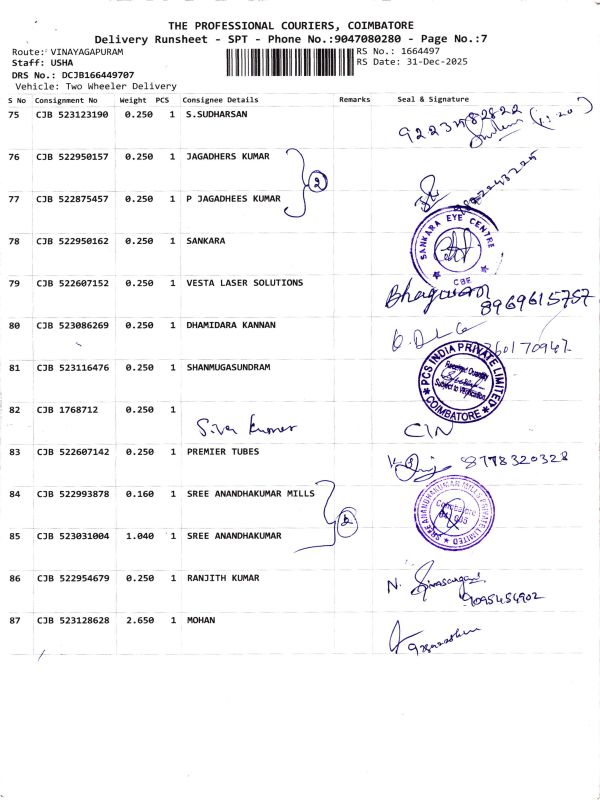 THE PROFESSIONAL COURIERS, COIMBATORE
Delivery Runsheet - SPT - Phone No.:9047080280 - Page No.:7
Route: VINAYAGAPURAM RS No.: 1664497
Staff: USHA RS Date: 31-Dec-2025
DRS No.: DCJB166449707
Vehicle: Two Wheeler Delivery
S No Consignment No Weight PCS Consignee Details Remarks Seal & Signature
75 CJB 523123190 0.250 1 S.SUDHARSAN
76 CJB 522950157 0.250 1 JAGADHERS KUMAR
2
77 CJB 522875457 0.250 1 P JAGADHEES KUMAR
78 CJB 522950162 0.250 1 SANKARA
SANKARA EYE CENTRE
CBE
79 CJB 522607152 0.250 1 VESTA LASER SOLUTIONS
Bhagwan
8969615757
80 CJB 523086269 0.250 1 DHAMIDARA KANNAN
81 CJB 523116476 0.250 1 SHANMUGASUNDRAM
PCS INDIA PRIVATE LIMITED
Received Quantity
Subject to Verification
COIMBATORE
82 CJB 1768712 0.250 1
Siva kumar
83 CJB 522607142 0.250 1 PREMIER TUBES
8778320328
84 CJB 522993878 0.160 1 SREE ANANDHAKUMAR MILLS
SREE ANANDHAKUMAR MILLS PRIVATE LIMITED
Coimbatore
85 CJB 523031004 1.040 1 SREE ANANDHAKUMAR
86 CJB 522954679 0.250 1 RANJITH KUMAR
N.
9095454902
87 CJB 523128628 2.650 1 MOHAN